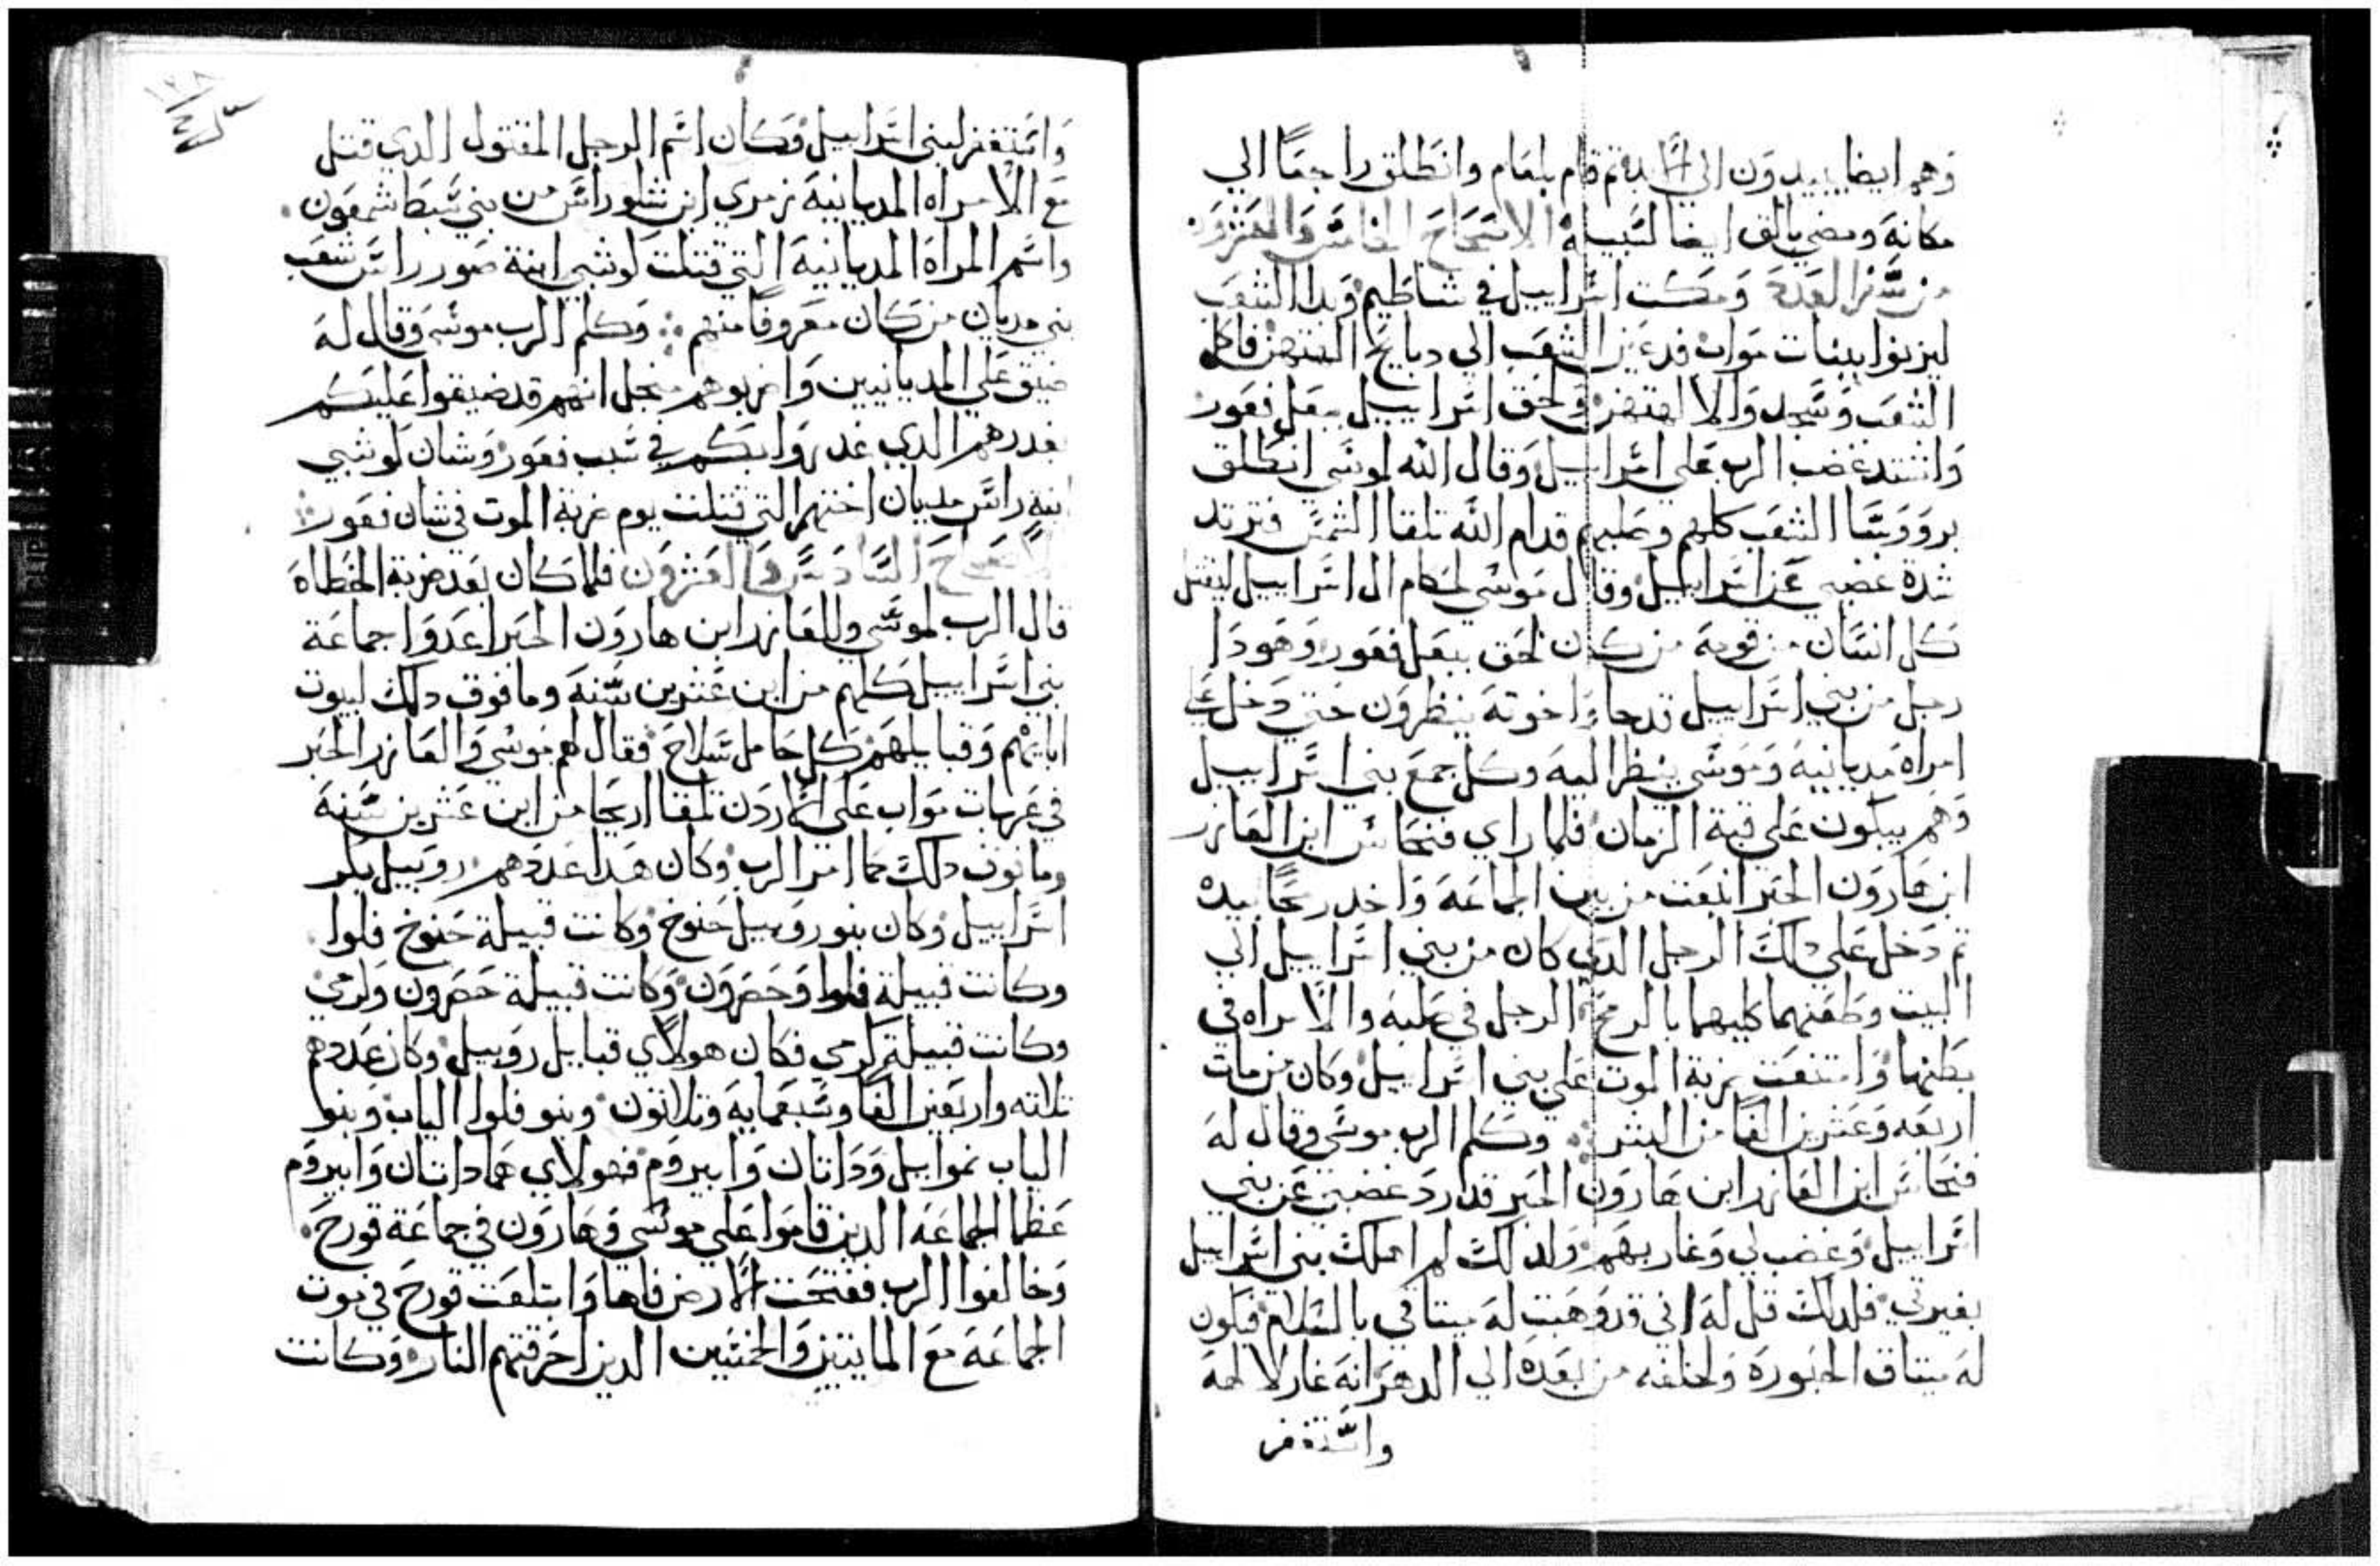 وهم ايضا يبيدون الي الابد ثم قام بلعام وانطلق راجعًا الي
مكانه ومضي بالق ايضا لسبيله الاصحاح الخامس والعشرون
من سفر العدد ومكت اسراييل في شاطيم وبدا الشعب
ليزنوا ببنات مواب فدعين الشعب الي دبايح الهتهن فاكل
الشعب وسجد والالهتهن ولحق اسراييل ببعل فغور
واشتد غضب الرب علي اسراييل وقال الله لموسي انطلق
برووسا الشعب كلهم وصليهم قدام الله تلقا الشمس وترتد
شدة غضبي عن اسراييل وقال موسي لحكام ال اسراييل ليقتل
كل انسان من قومه من كان لحق ببعل فغور وهودا
رجل من بني اسراييل قدجا واخوته ينظرون حتي دخل علي
امراه مديانيه وموسي ينظر اليه وكل جمع بني اسراييل
وهم يبكون علي قبة الزمان فلما راي فنحاس ابن العازر
ابن هارون الحبر انبعت من بين الجماعه واخد رمحًا بيده
تم دخل علي دلك الرجل الدي كان من بني اسراييل الي
البيت وطعنهما كليهما بالرمح الرجل في صلبه والامراه في
بطنها وامتنعت ضربة الموت علي بني اسراييل وكان من مات
اربعه وعشرين الفًا من البشر وكلم الرب موسي وقال له
فنحاس ابن العازر ابن هارون الحبر قد ارد غضبي عن بني
اسراييل وغضب لي وغار بهم ولدلك لم اهلك بني اسراييل
بغيرتي فلدلك قل له اني قد وهبت له ميتاقي بالسلام فيكون
له ميتاق الحبوره ولخلفه من بعده الي الدهر انه غار لالهه
واستغفر
واستغفر لبني اسراييل وكان اسم الرجل المقتول الدي قتل
مع الامراه المديانيه زمري ابن شلو راس من بني سبط شمعون
واسم المراة المديانيه التي قتلت لوشبي ابنة صور راس شعب
بني مديان من كان معروفًا منهم وكلم الرب موسي وقال له
ضيق علي المديانيين واضربوهم منجل انهم قد ضيقوا عليكم
بغدرهم الدي غدروا بكم في سبب فغور وشان لوشبي
ابنة راس مديان اختهم التي قتلت يوم ضربة الموت في شان فغور
الاصحاح السادس والعشرون فلما كان بعد ضربة الخطاه
قال الرب لموسي وللعازر ابن هارون الحبر اعدوا جماعة
بني اسراييل كلهم من ابن عشرين سنه وما فوق دلك لبيوت
ابايهم وقبايلهم كل حامل سلاح فقال لهم موسي والعازر الحبر
في عربات مواب علي الاردن تلقا اريحا من ابن عشرين سنه
وما فوق دلك كما امر الرب وكان هدا عددهم روبيل بكر
اسراييل وكان بنو روبيل حنوخ وكانت قبيلة حنوخ فلوا
وكانت قبيلة فلوا وحصرون وكانت قبيلة حصرون ولرمي
وكانت قبيلة كرمي فكان هولاي قبايل روبيل وكان عددهم
تلاته واربعين الفًا وسبعمايه وتلاتون وبنو فلوا الياب وبنوا
الياب نموابيل وداتان وابيروم فهولاي هما داتان وابيروم
عظما الجماعه الدين قاموا علي موسي وهارون في جماعة قورح
وخالفوا الرب ففتحت الارض فاها وابتلعت قورح في موت
الجماعه مع المايتين والخمسين الدين احرقتهم النار وكانت